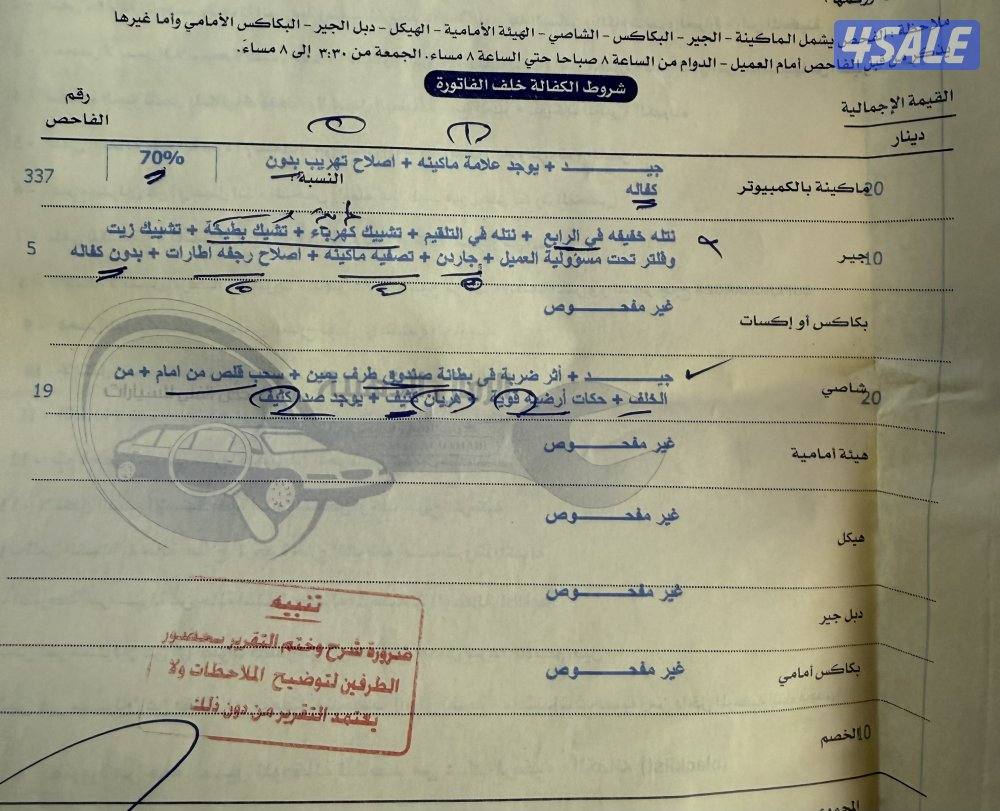 4SALE
ملاحظة : الفحص يشمل الماكينة - الجير - البكاكس - الشاصي - الهيئة الأمامية - الهيكل - دبل الجير - البكاكس الأمامي وأما غيرها
يذكر من قبل الفاحص أمام العميل - الدوام من الساعة ٨ صباحا حتي الساعة ٨ مساء، الجمعة من ٣:٣٠ إلى ٨ مساءً.
شروط الكفالة خلف الفاتورة
القيمة الإجمالية
دينار
رقم الفاحص
20 ماكينة بالكمبيوتر
جيـــــــد + يوجد علامة ماكينه + اصلاح تهريب بدون
كفاله
النسبة:
70%
337
10 جير
نتله خفيفه في الرابع + نتله في التلقيم + تشييك كهرباء + تشيك بطيكة + تشييك زيت
وفلتر تحت مسؤولية العميل + جاردن + تصفيه ماكينه + اصلاح رجفه اطارات + بدون كفاله
5
بكاكس أو إكسات
غير مفحـــــوص
20 شاصي
جيـــــــد + أثر ضربة في بطانة صندوق طرف يمين + سحب قلص من امام + من
الخلف + حكات أرضيه قوية + هريان كثيف + يوجد صدا كثيف
19
هيئة أمامية
غير مفحـــــوص
هيكل
غير مفحـــــوص
دبل جير
غير مفحـــــوص
بكاكس أمامي
غير مفحـــــوص
10 الخصم
تنبيه
ضرورة شرح وختم التقرير بحضور
الطرفين لتوضيح الملاحظات ولا
يعتمد التقرير من دون ذلك